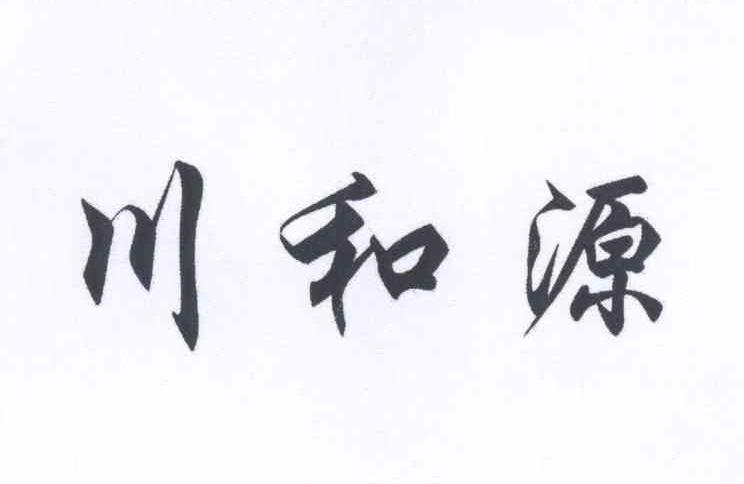 川和源